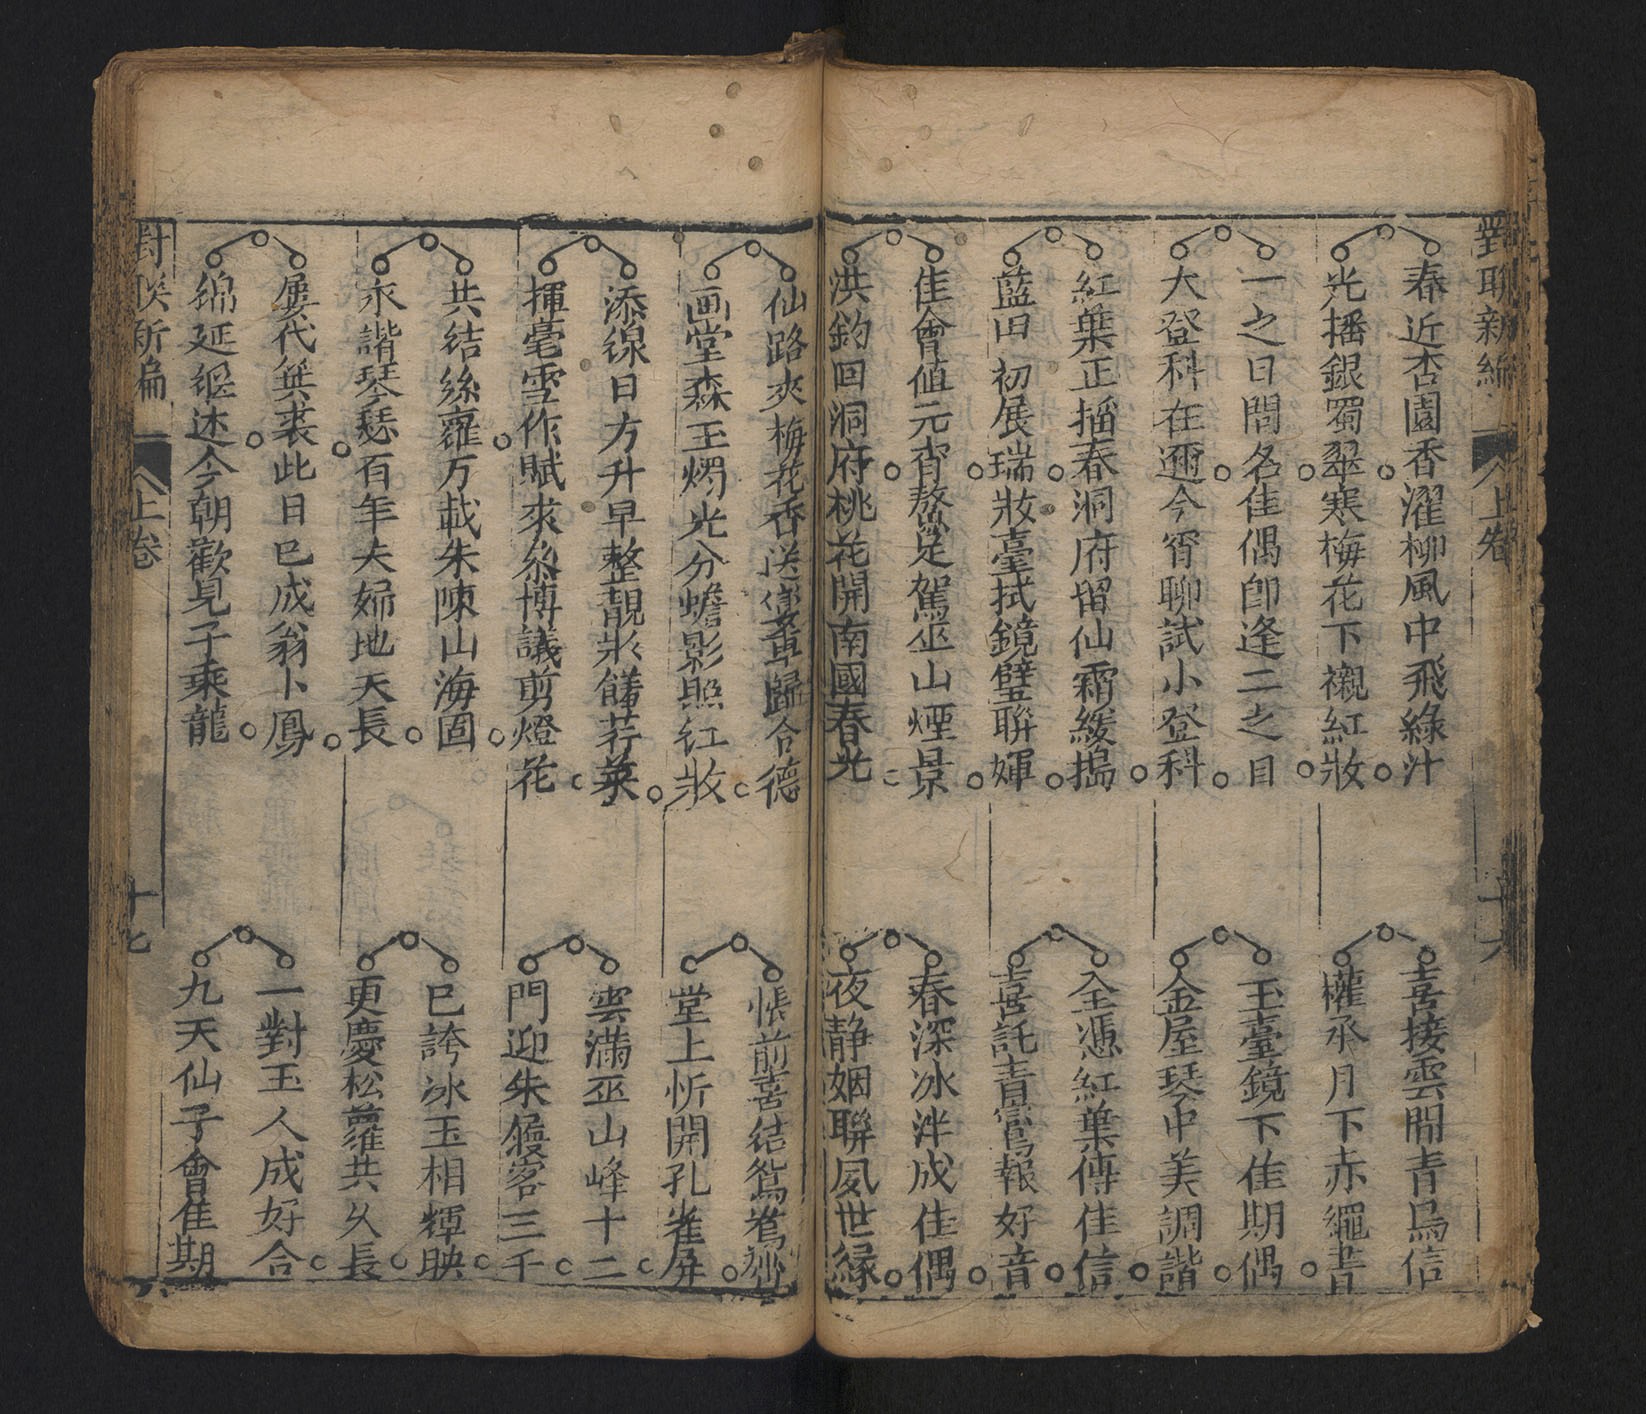 對聯新編 上卷 十六
春近杏園香濯柳風中飛綠汁
光播銀蜀翠寒梅花下襯紅妝
一之日問名佳偶卽逢二之目
大登科在邇今宵聊試小登科
紅葉正摇春洞府留仙霜緩搗
藍田初展瑞妝臺拭鏡璧聨輝
佳會值元宵鰲足駕巫山煙景
洪鈞回洞府桃花開南國春光
喜接雲間青鳥信
權承月下赤繩書
玉臺鏡下佳期偶
金屋琴中美調諧
全憑紅葉傳佳信
喜託青鸞報好音
春深冰泮成佳偶
夜静姻聨夙世緣
仙路夾梅花香送寶車歸合德
画堂森玉燭光分蟾影照红妝
添線日方升早整靚妝饈荇菜
揮毫雪作賦來条博議剪燈花
共結絲蘿万載朱陳山海固
永諧琴瑟百年夫婦地天長
屢代箕裘此日已成翁卜鳳
綿延祖述今朝歡見子乘龍
悵前喜結鴛鴦
堂上忻開孔雀屏
雲滿巫山峰十二
門迎朱履客三千
已誇冰玉相輝映
更慶松蘿共久長
一對玉人成好合
九天仙子會佳期
對聯新編 上卷 十七